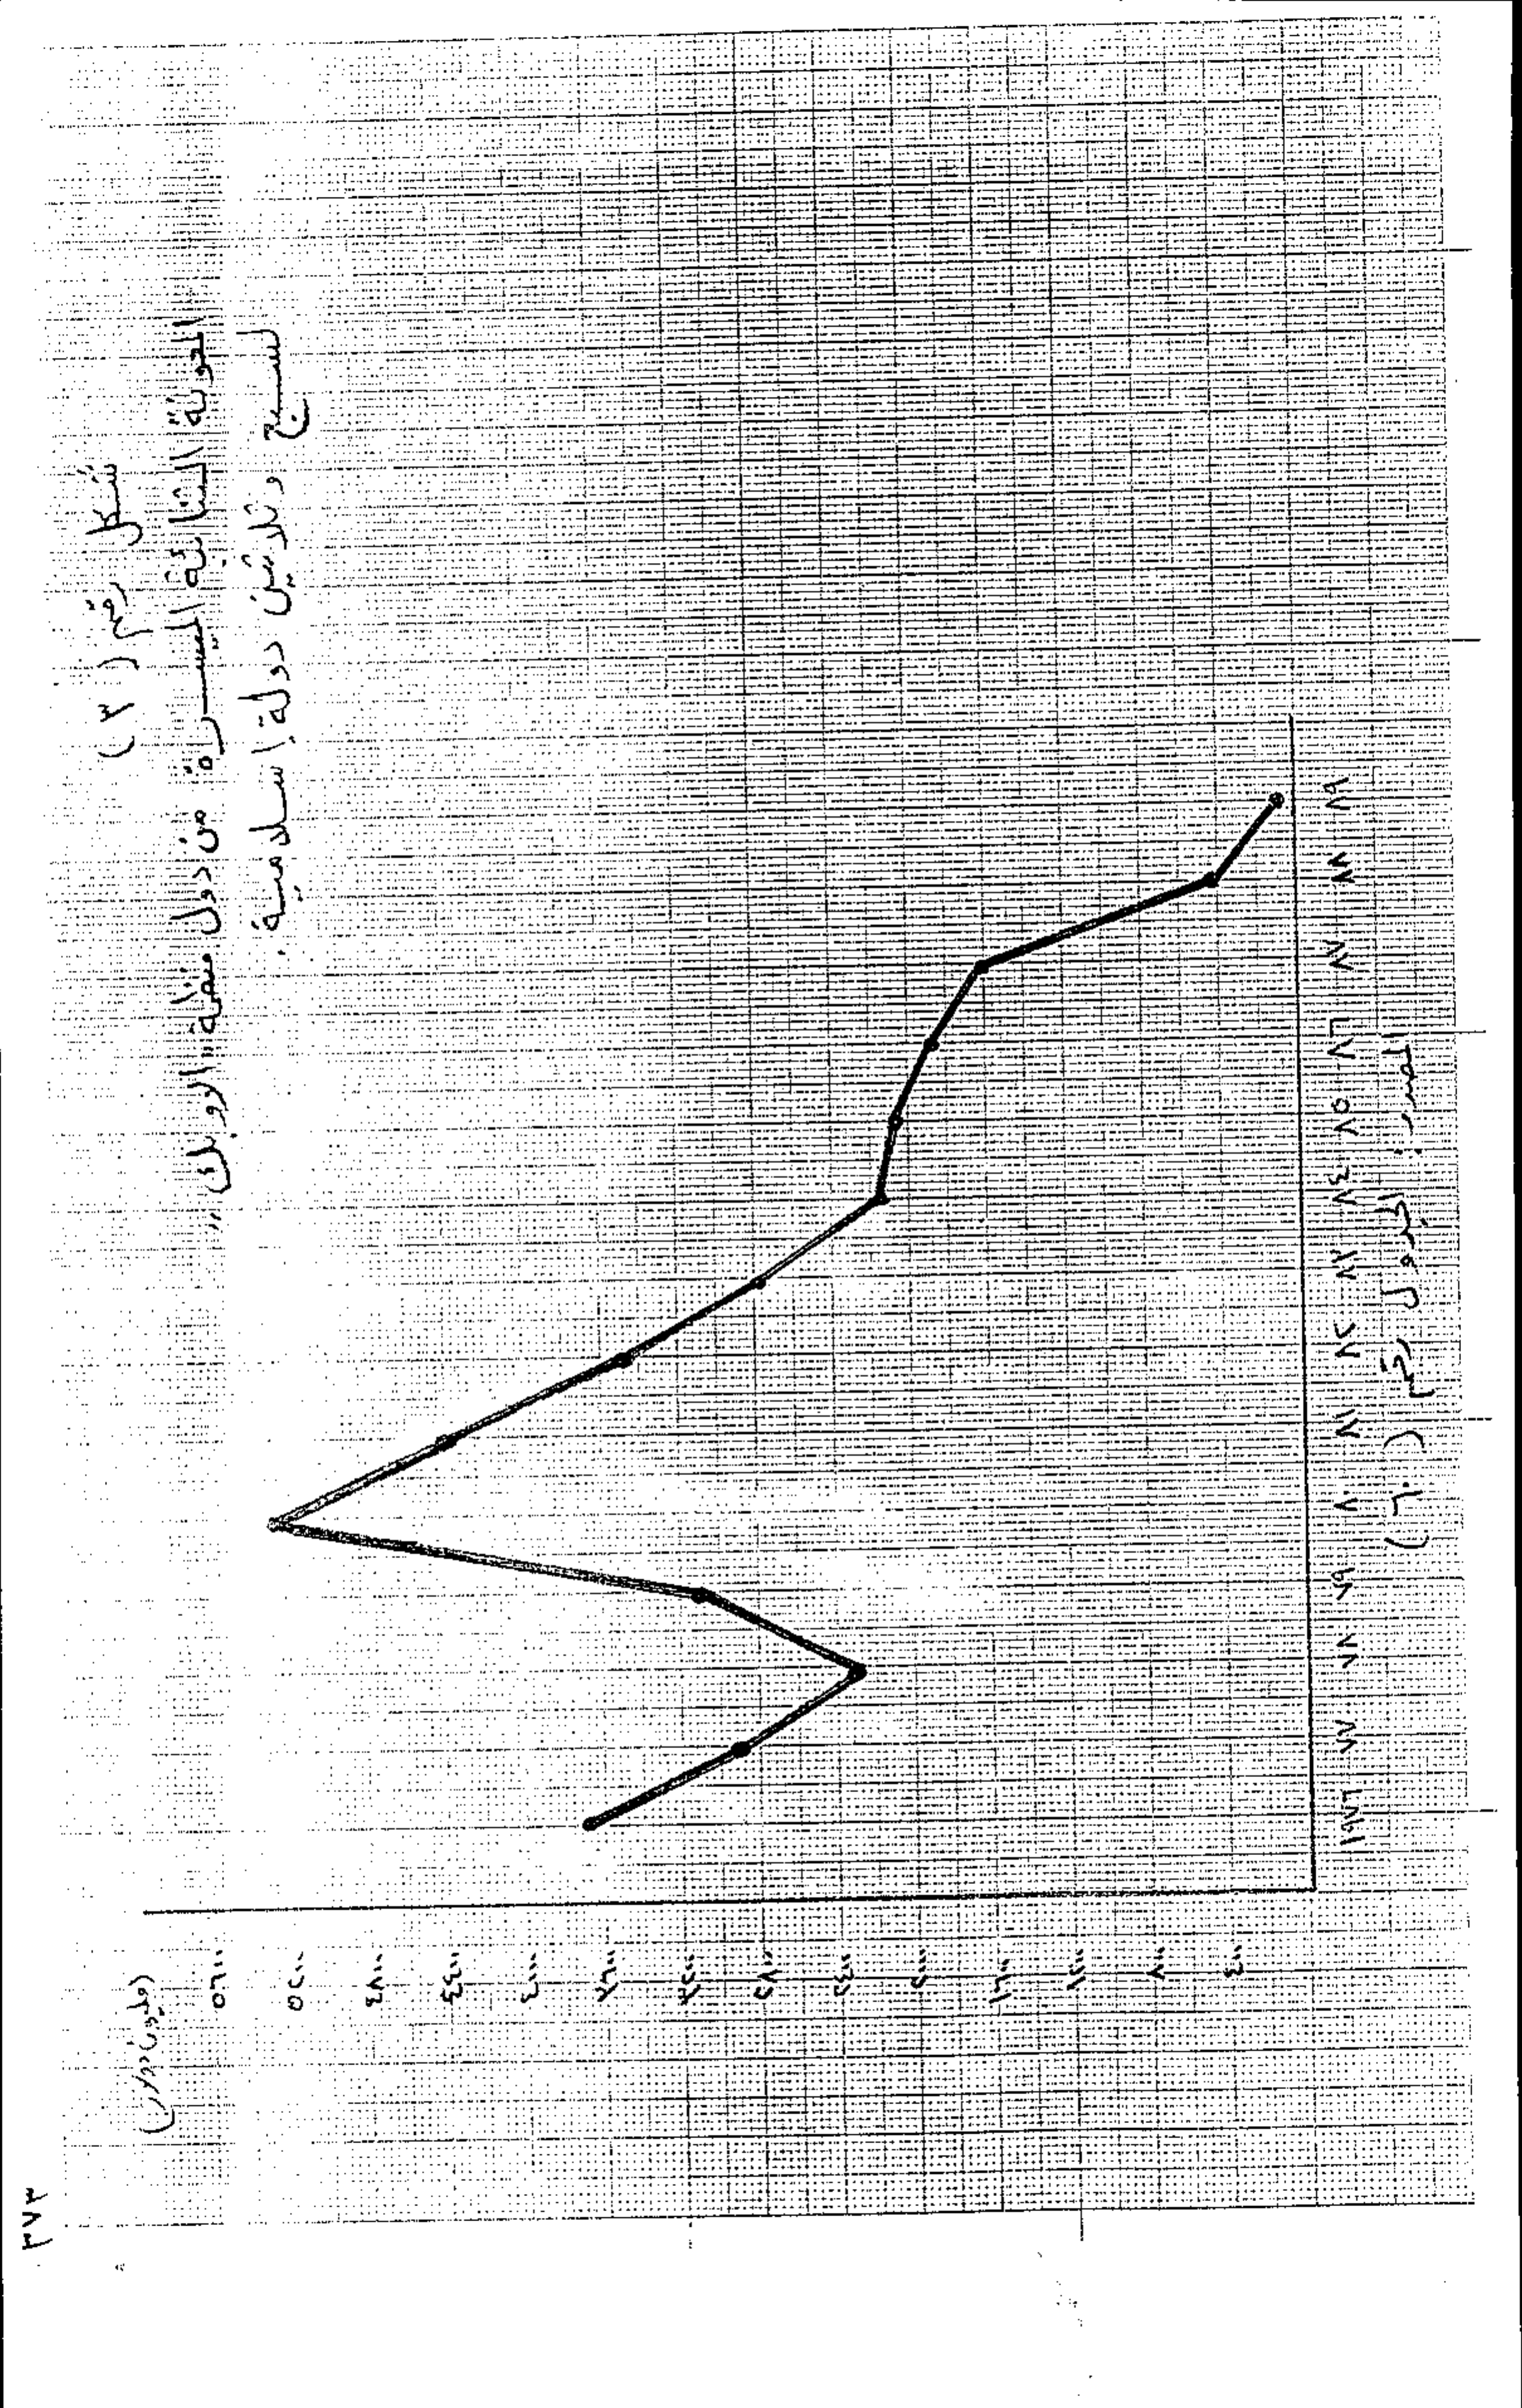 ٣٧٣
شكل رقم ( ٣ )
المعونة الثنائية الميسرة من دول منظمة ,, الاوبك ,,
لسبع وثلاثين دولة اسلامية .
(مليون دولار)
٥٦٠٠
٥٢٠٠
٤٨٠٠
٤٤٠٠
٤٠٠٠
٣٦٠٠
٣٢٠٠
٢٨٠٠
٢٤٠٠
٢٠٠٠
١٦٠٠
١٢٠٠
٨٠٠
٤٠٠
١٩٧٦ ٧٧ ٧٨ ٧٩ ٨٠ ٨١ ٨٢ ٨٣ ٨٤ ٨٥ ٨٦ ٨٧ ٨٨ ٨٩
المصدر : الجدول رقم ( ٦٠ )